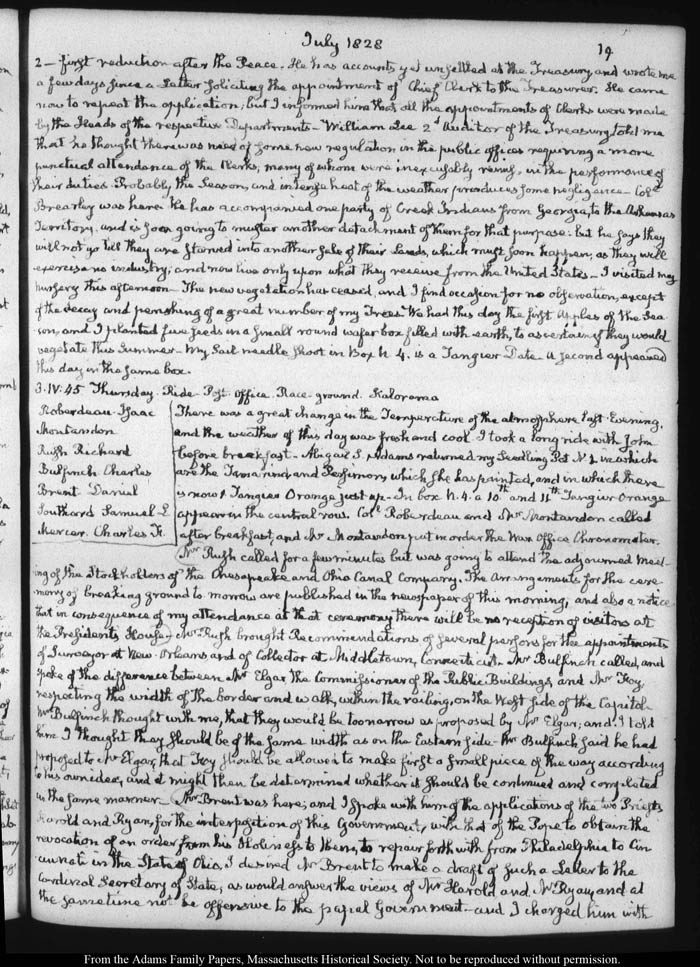 July 1828
19
2 — first reduction after the Peace. He has accounts yet unsettled at the Treasury and wrote me
a few days since a Letter soliciting the appointment of Chief Clerk to the Treasurer. He came
now to repeat the application; but I informed him that all the appointments of Clerks were made
by the Heads of the respective Departments — William Lee 2d Auditor of the Treasury, told me
that he thought there was need of some new regulation in the public offices requiring a more
punctual attendance of the Clerks, many of whom were inexcusably remiss in the performance of
their duties. Probably the Season, and intense heat of the weather produces some negligence. Coll.
Brearley was here. He has accompanied one party of Creek Indians from Georgia, to the Arkansas
Territory. and is soon going to muster another detachment of them for that purpose: but he says they
will not go till they are starved into another sale of their Lands, which must soon happen, as they will
exercise no industry; and now live only upon what they receive from the United States — I visited my
nursery this afternoon — The new vegetation has ceased, and I find occasion for no observation, except
of the decay and perishing of a great number of my Trees. We had this day the first Apples of the Sea-
son, and I planted five seeds in a small round wafer box filled with earth, to ascertain if they would
vegetate this Summer — My Sail needle shoot in Box N. 4. is a Tangier Date. A second appeared
this day in the same box.
3. IV: 45 Thursday. Ride Post Office. Race-ground. Kalorama
Roberdeau Isaac
Montandon
Rush Richard
Bulfinch Charles
Brent Daniel
Southard Samuel L
Mercer. Charles F.
There was a great change in the Temperature of the atmosphere last Evening,
and the weather of this day was fresh and cool. I took a long ride with John
before breakfast — Abigail S. Adams returned my Seedling Pot N. 2 in which
are the Tamarind and Persimon, which she has painted, and in which there
is now a Tangier Orange just up. — In box N. 4. a 10th and 11th Tangier Orange
appear in the central row. Coll. Roberdeau and Mr. Montandon called
after breakfast, and Mr Montandon put in order the War Office Chronometer.
Mr Rush called for a few minutes but was going to attend the adjourned Meet-
ing of the Stockholders of the Chesapeake and Ohio Canal Company. The arrangements for the cere-
mony of breaking ground to morrow are published in the newspaper of this morning, and also a notice
that in consequence of my attendance at that ceremony there will be no reception of visitors at
the President's House. Mr Rush brought Recommendations of several persons for the appointments
of Surveyor at New-Orleans and of Collector at Middletown, Connecticut. Mr Bulfinch called, and
spoke of the difference between Mr Elgar the Commissioner of the Public Buildings, and Mr Foy,
respecting the width of the border and walk, within the railing, on the West side of the Capitol.
Mr Bulfinch thought with me, that they would be too narrow as proposed by Mr Elgar; and I told
him I thought they should be of the same width as on the Eastern side. Mr Bulfinch said he had
proposed to Mr Elgar, that Foy should be allowed to make first a small piece of the way according
to his own idea, and it might then be determined whether it should be continued and completed
in the same manner — Mr Brent was here; and I spoke with him of the applications of the two Priests
Harold and Ryan, for the interposition of this Government, with that of the Pope to obtain the
revocation of an order from his Holiness to them, to repair forthwith from Philadelphia to Cin-
cinnati in the State of Ohio. I desired Mr Brent to make a draft of such a Letter to the
Cardinal Secretary of State, as would answer the views of Mr Harold and Mr Ryan, and at
the same time not be offensive to the papal Government — and I charged him with
From the Adams Family Papers, Massachusetts Historical Society. Not to be reproduced without permission.